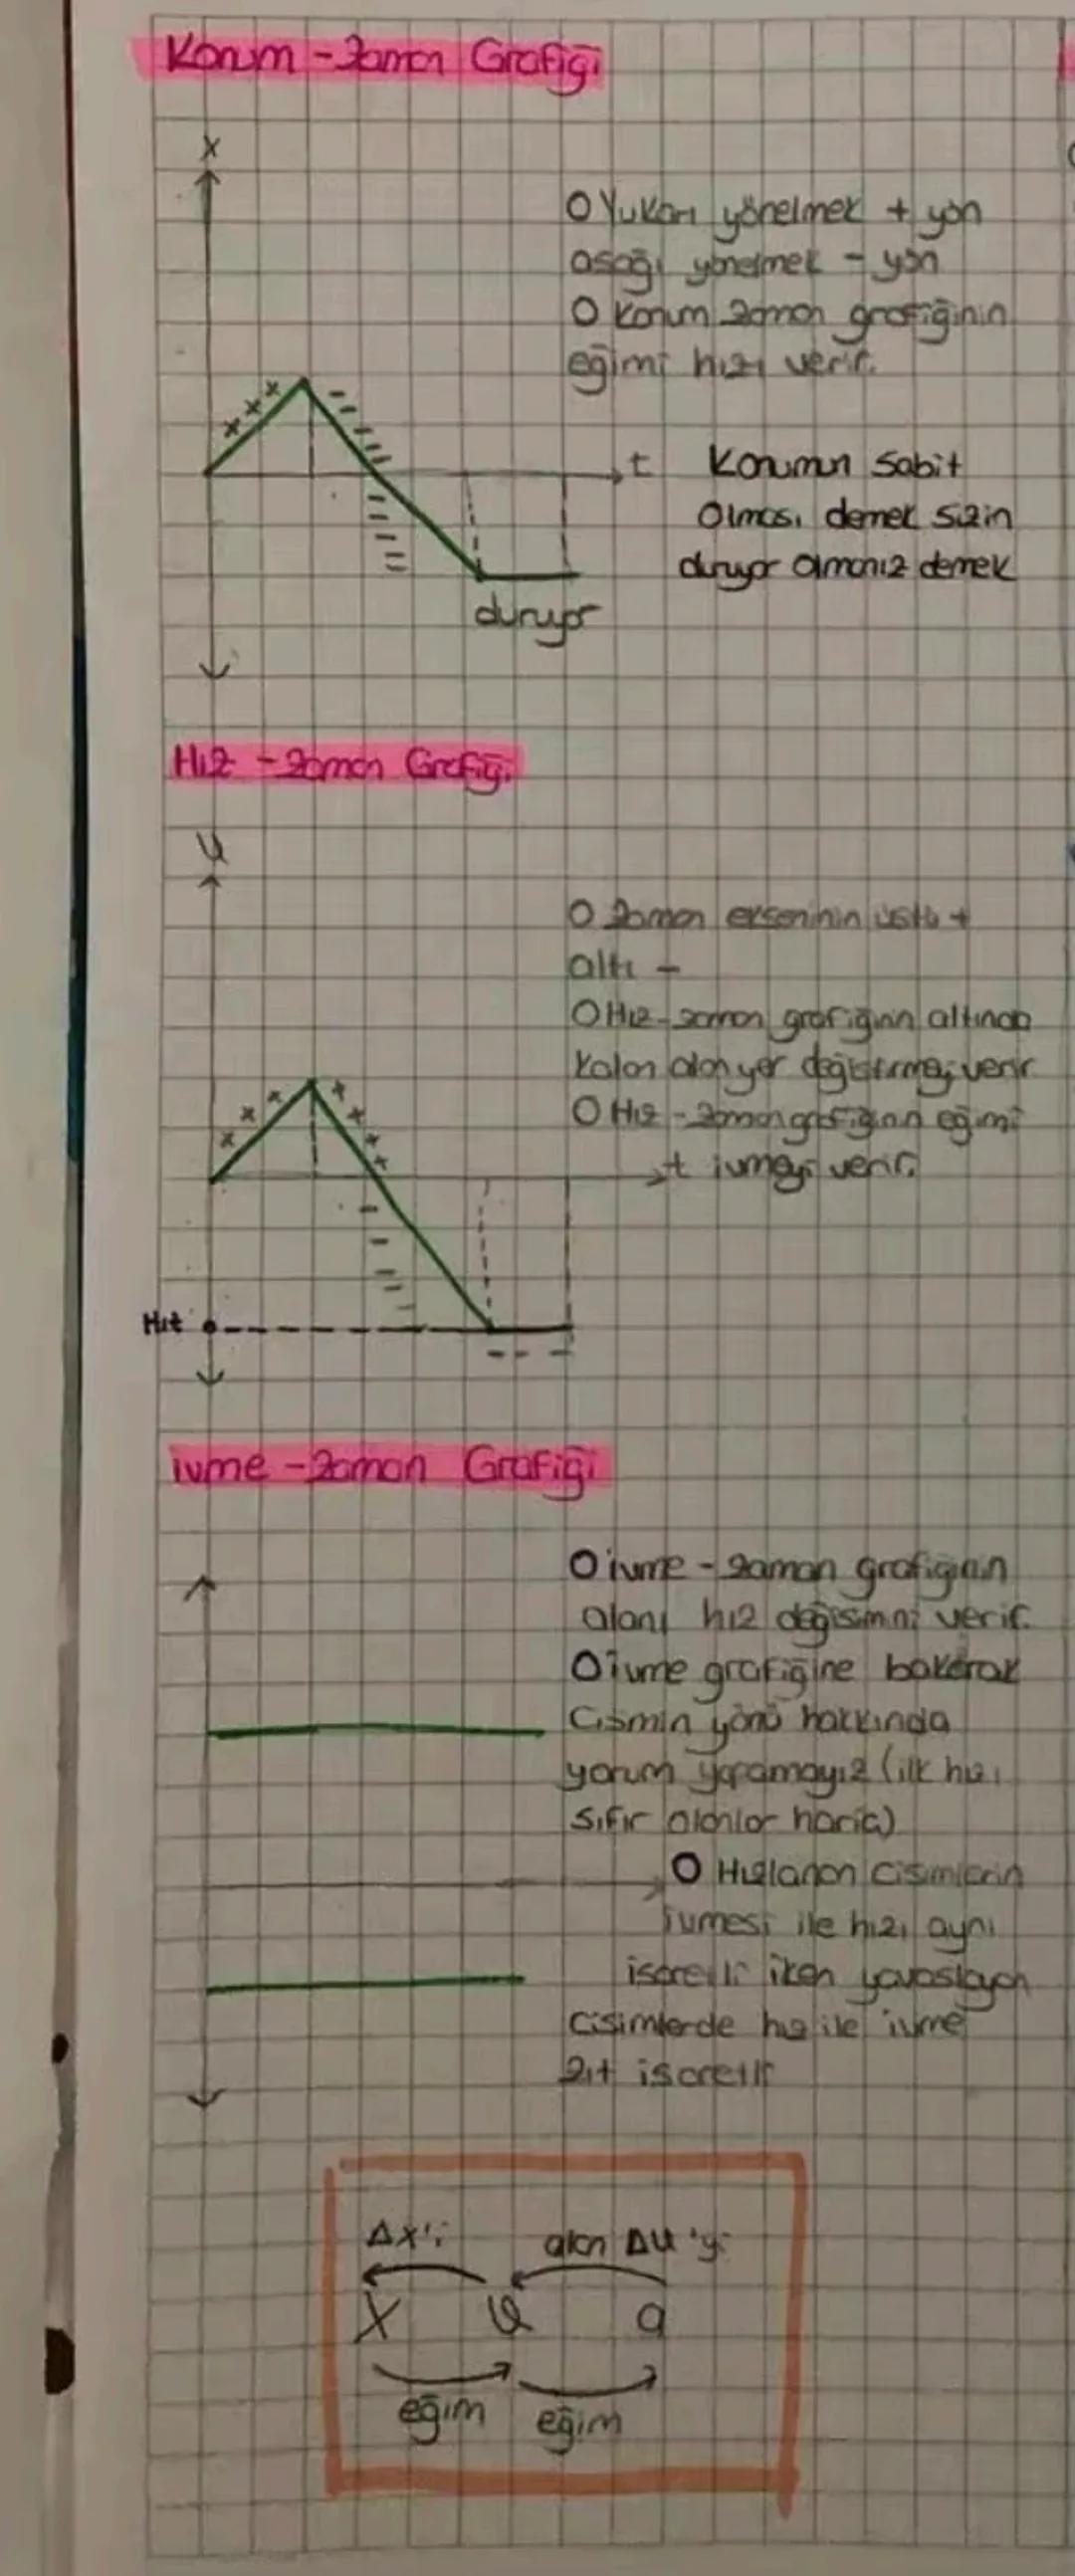 Konum - Zaman Grafiği
X
O Yukarı yönelmek + yön
aşağı yönelmek - yön
O Konum zaman grafiğinin
eğimi hızı verir.
+ + +
t
Konumun sabit
Olması demek sizin
duruyor olmanız demek
duruyor
Hız - Zaman Grafiği
O Zaman ekseninin üstü +
altı -
O Hız - zaman grafiğinin altında
kalan alan yer değiştirmeyi verir
O Hız - zaman grafiğinin eğimi
t ivmeyi verir.
Hız
ivme - Zaman Grafiği
O ivme - zaman grafiğinin
alanı hız değişimini verir.
O ivme grafiğine bakarak
Cismin yönü hakkında
yorum yapamayız (ilk hızı
sıfır olanlar hariç)
O Hızlanan cisimlerin
ivmesi ile hızı aynı
işaretli iken yavaşlayan
cisimlerde hız ile ivme
zıt işaretli
ΔX'i alan Δϑ'yi
X ϑ a
eğim eğim